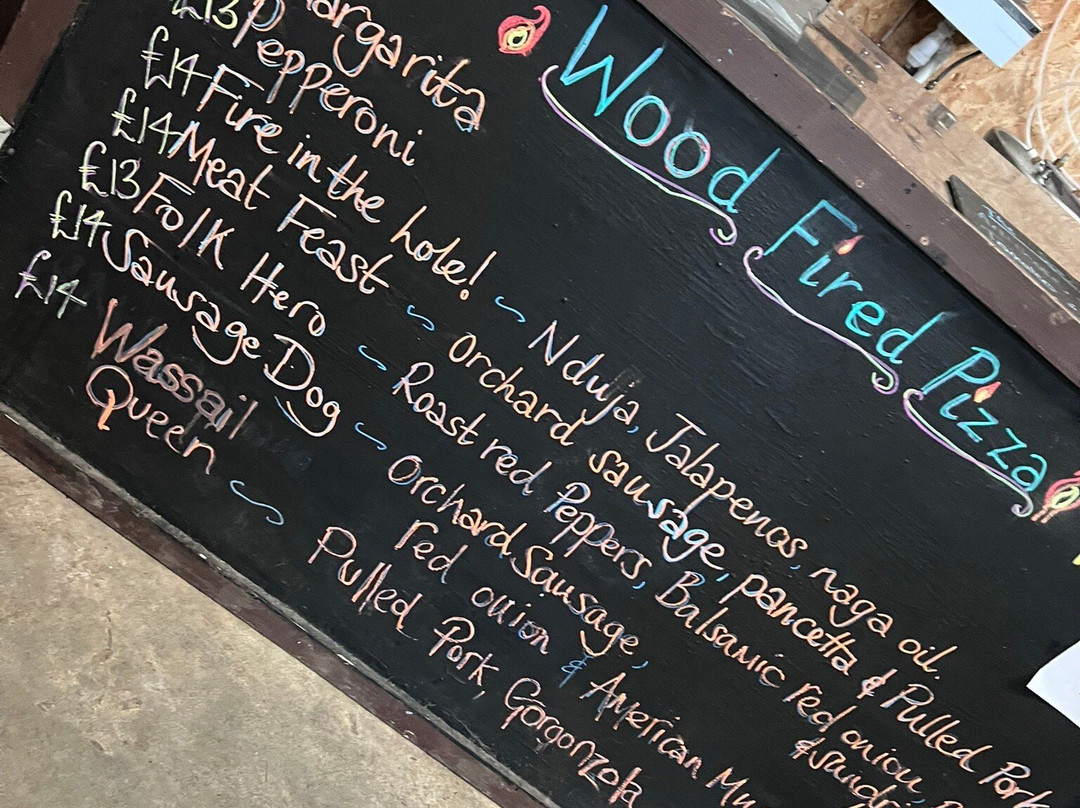 Wood Fired Pizza
Margarita
£13 Pepperoni
£14 Fire in the hole! ~ Nduja, Jalapenos, naga oil.
£14 Meat Feast ~ Orchard sausage, pancetta & Pulled Pork
£13 Folk Hero ~ Roast red Peppers, Balsamic red onion,
£14 Sausage Dog ~ Orchard Sausage,
red onion & American
£14 Wassail
Queen ~ Pulled Pork, Gorgonzola